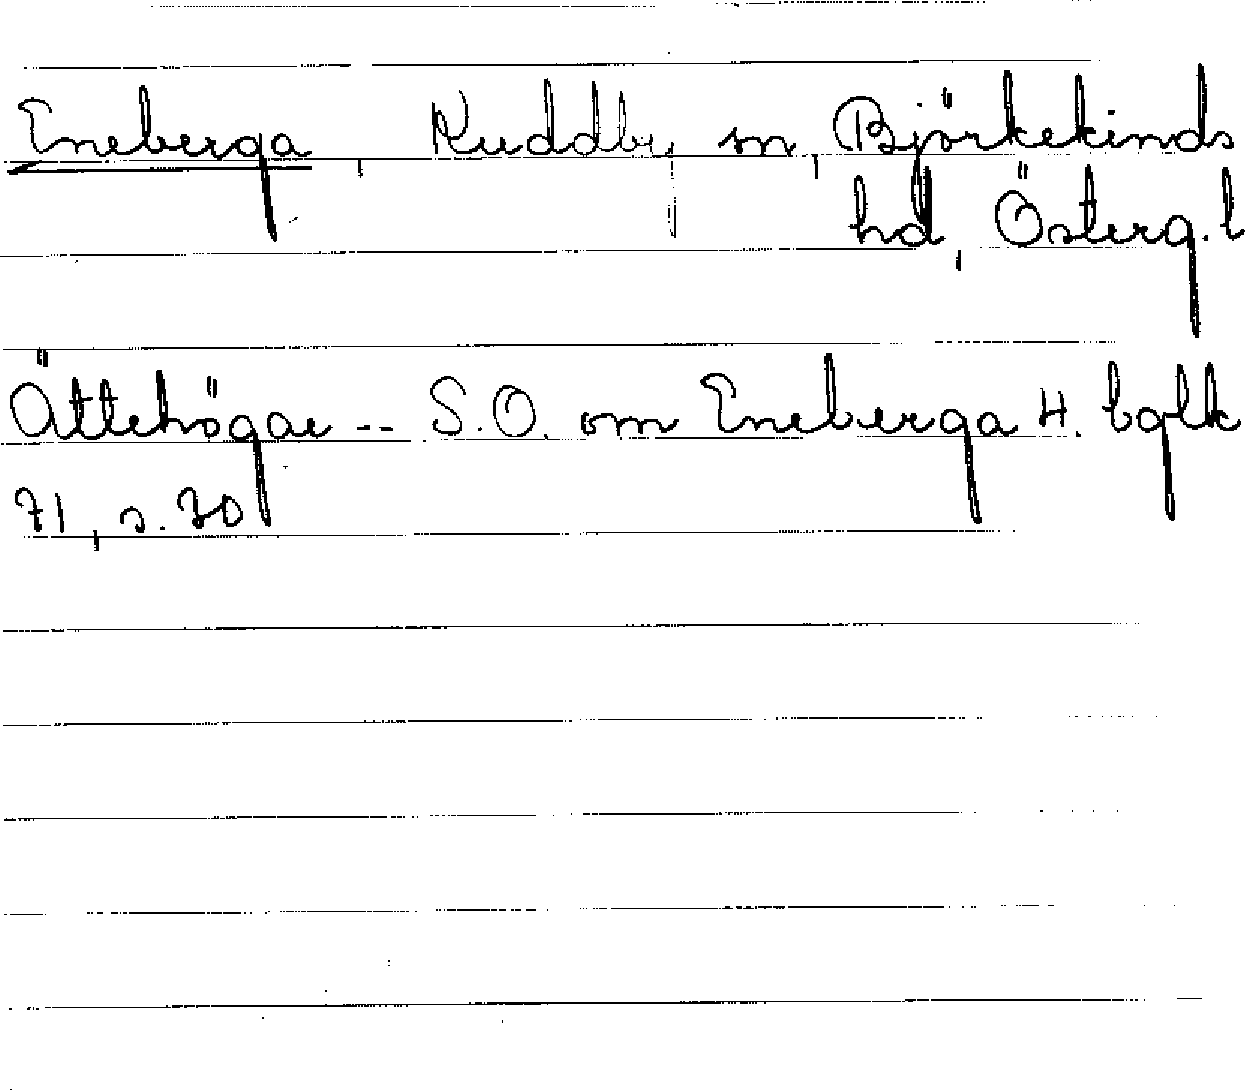 Eneberga, Kuddby sn, Björkekinds
hd, Österg. l
Ättehögar -- S.O. om Eneberga H. bglk
71, s. 70